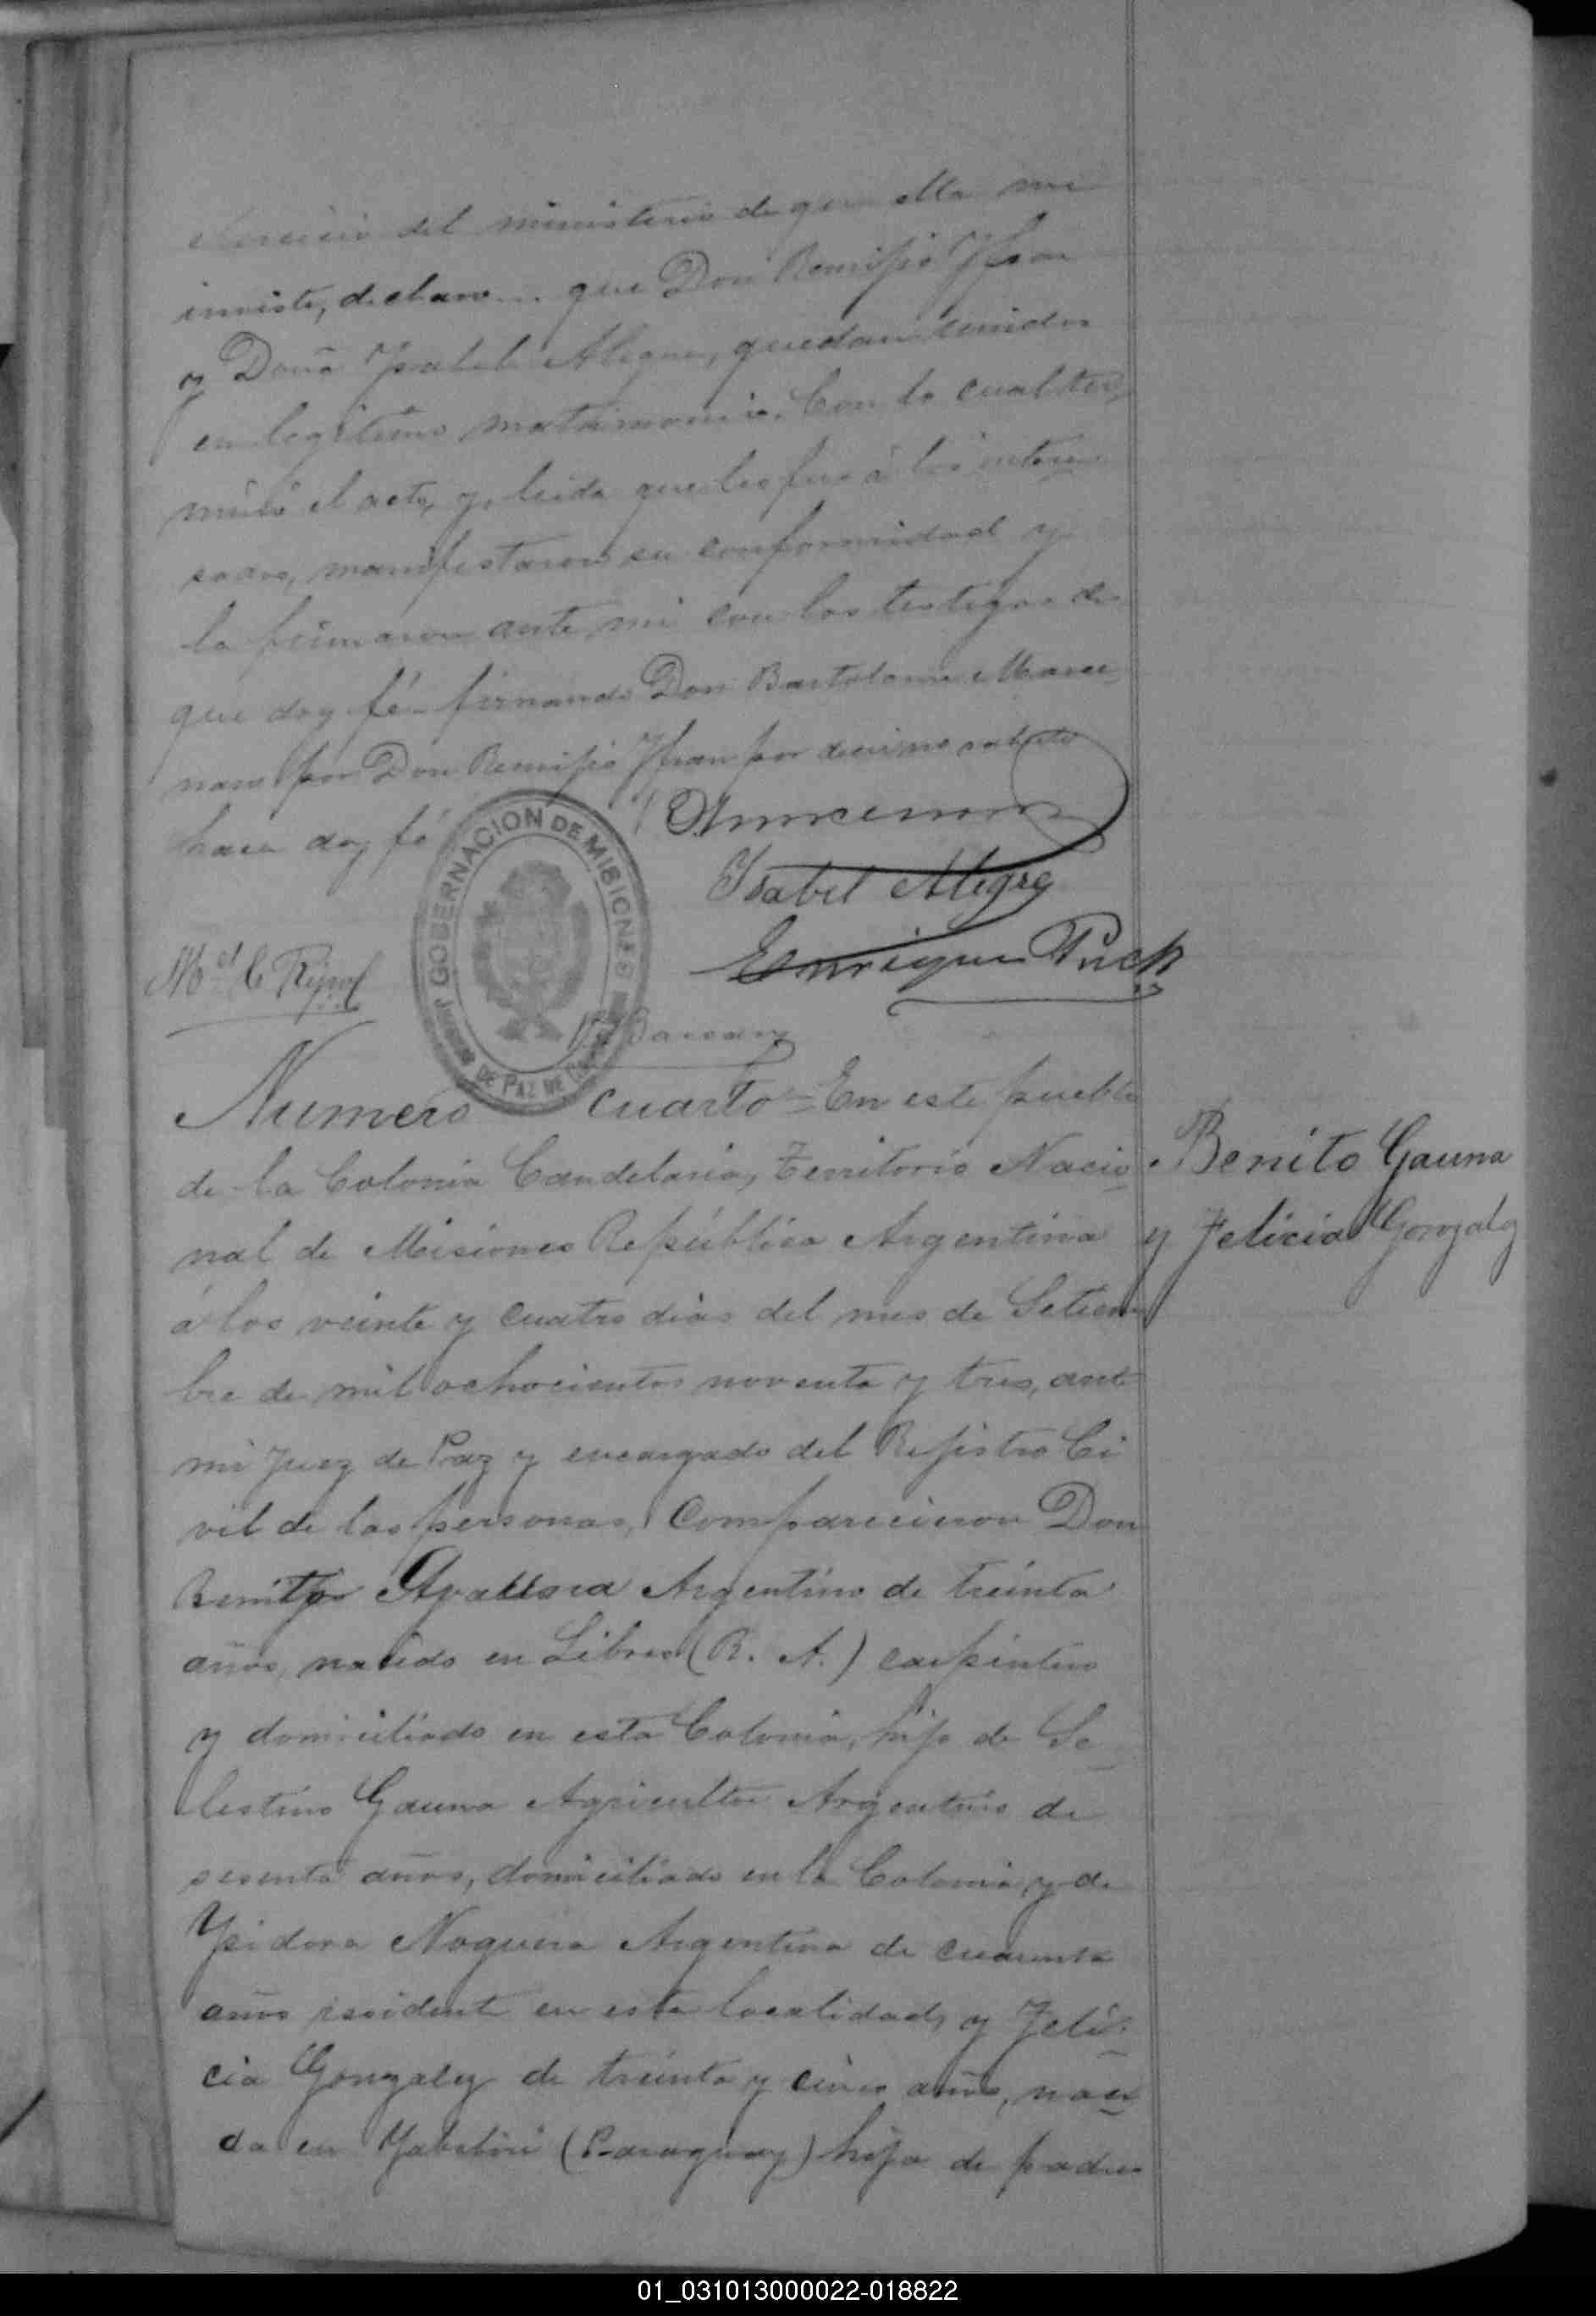 ejercicio del ministerio de que ella me
inviste, declaro... que Don Remijio Yfran
y Doña Ysabel Alegre, quedan unidos
en legitimo matrimonio. Con lo cual ter
minó el acto, y leida que les fue á los intere
sados, manifestaron su conformidad y
la firmaron ante mi con los testigos de
que doy fé - firmando Don Bartolome Marce
naro por Don Remijio Yfran por decir no saberlo
hacer doy fé
GOBERNACION DE MISIONES
JUZGADO DE PAZ DE
Ysabel Alegre
Enrique Puck
Numero cuarto = En este pueblo
de la Colonia Candelaria, Territorio Nacio
nal de Misiones República Argentina
á los veinte y cuatro dias del mes de Setiem
bre de mil ochocientos noventa y tres, ante
mi Juez de Paz y encargado del Rejistro Ci
vil de las personas, Comparecieron Don
Benito Argentino de treinta
años, nacido en Libres (R. A.) carpintero
y domiciliado en esta Colonia, hijo de Se
lestino Gauna Agricultor Argentino de
sesenta años, domiciliado en la Colonia, y de
Ysidora Noguera Argentina de cuarenta
años residente en esta localidad, y Feli
cia Gonzalez de treinta y cinco años, naci
da en (Paraguay) hija de padres
Benito Gauna
y Felicia Gonzalez
01_031013000022-018822